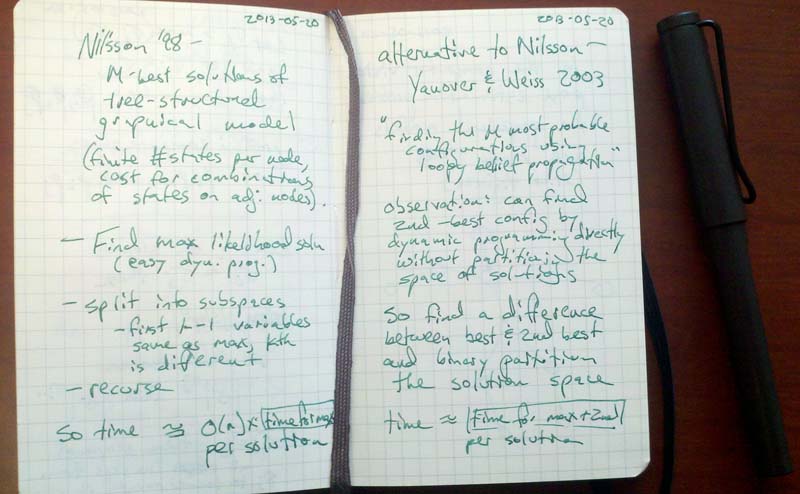 2013-05-20
Nilsson '98 –
M-best solutions of
tree-structured
graphical model
(finite # states per node,
cost for combinations
of states on adj. nodes).
– Find max likelihood soln
(easy dyn. prog.)
– split into subspaces
– first k-1 variables
same as max, kth
is different
– recurse
So time ≈ O(n) × time for max
per solution
2013-05-20
alternative to Nilsson –
Yanover & Weiss 2003
"finding the M most probable
configurations using
loopy belief propagation"
observation: can find
2nd-best config by
dynamic programming directly
without partitioning the
space of solutions
So find a difference
between best & 2nd best
and binary partition
the solution space
time ≈ time for max + 2nd
per solution